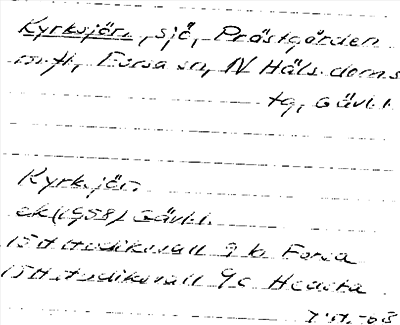 Kyrksjön, sjö, Prästgården
m.fl., Forsa sn, N Häls. doms
tg, Gävl.l.
Kyrksjön
ek (1958) Gävl.l.
15H Hudiksvall 9 b Forsa
15H Hudiksvall 9c Hecksta